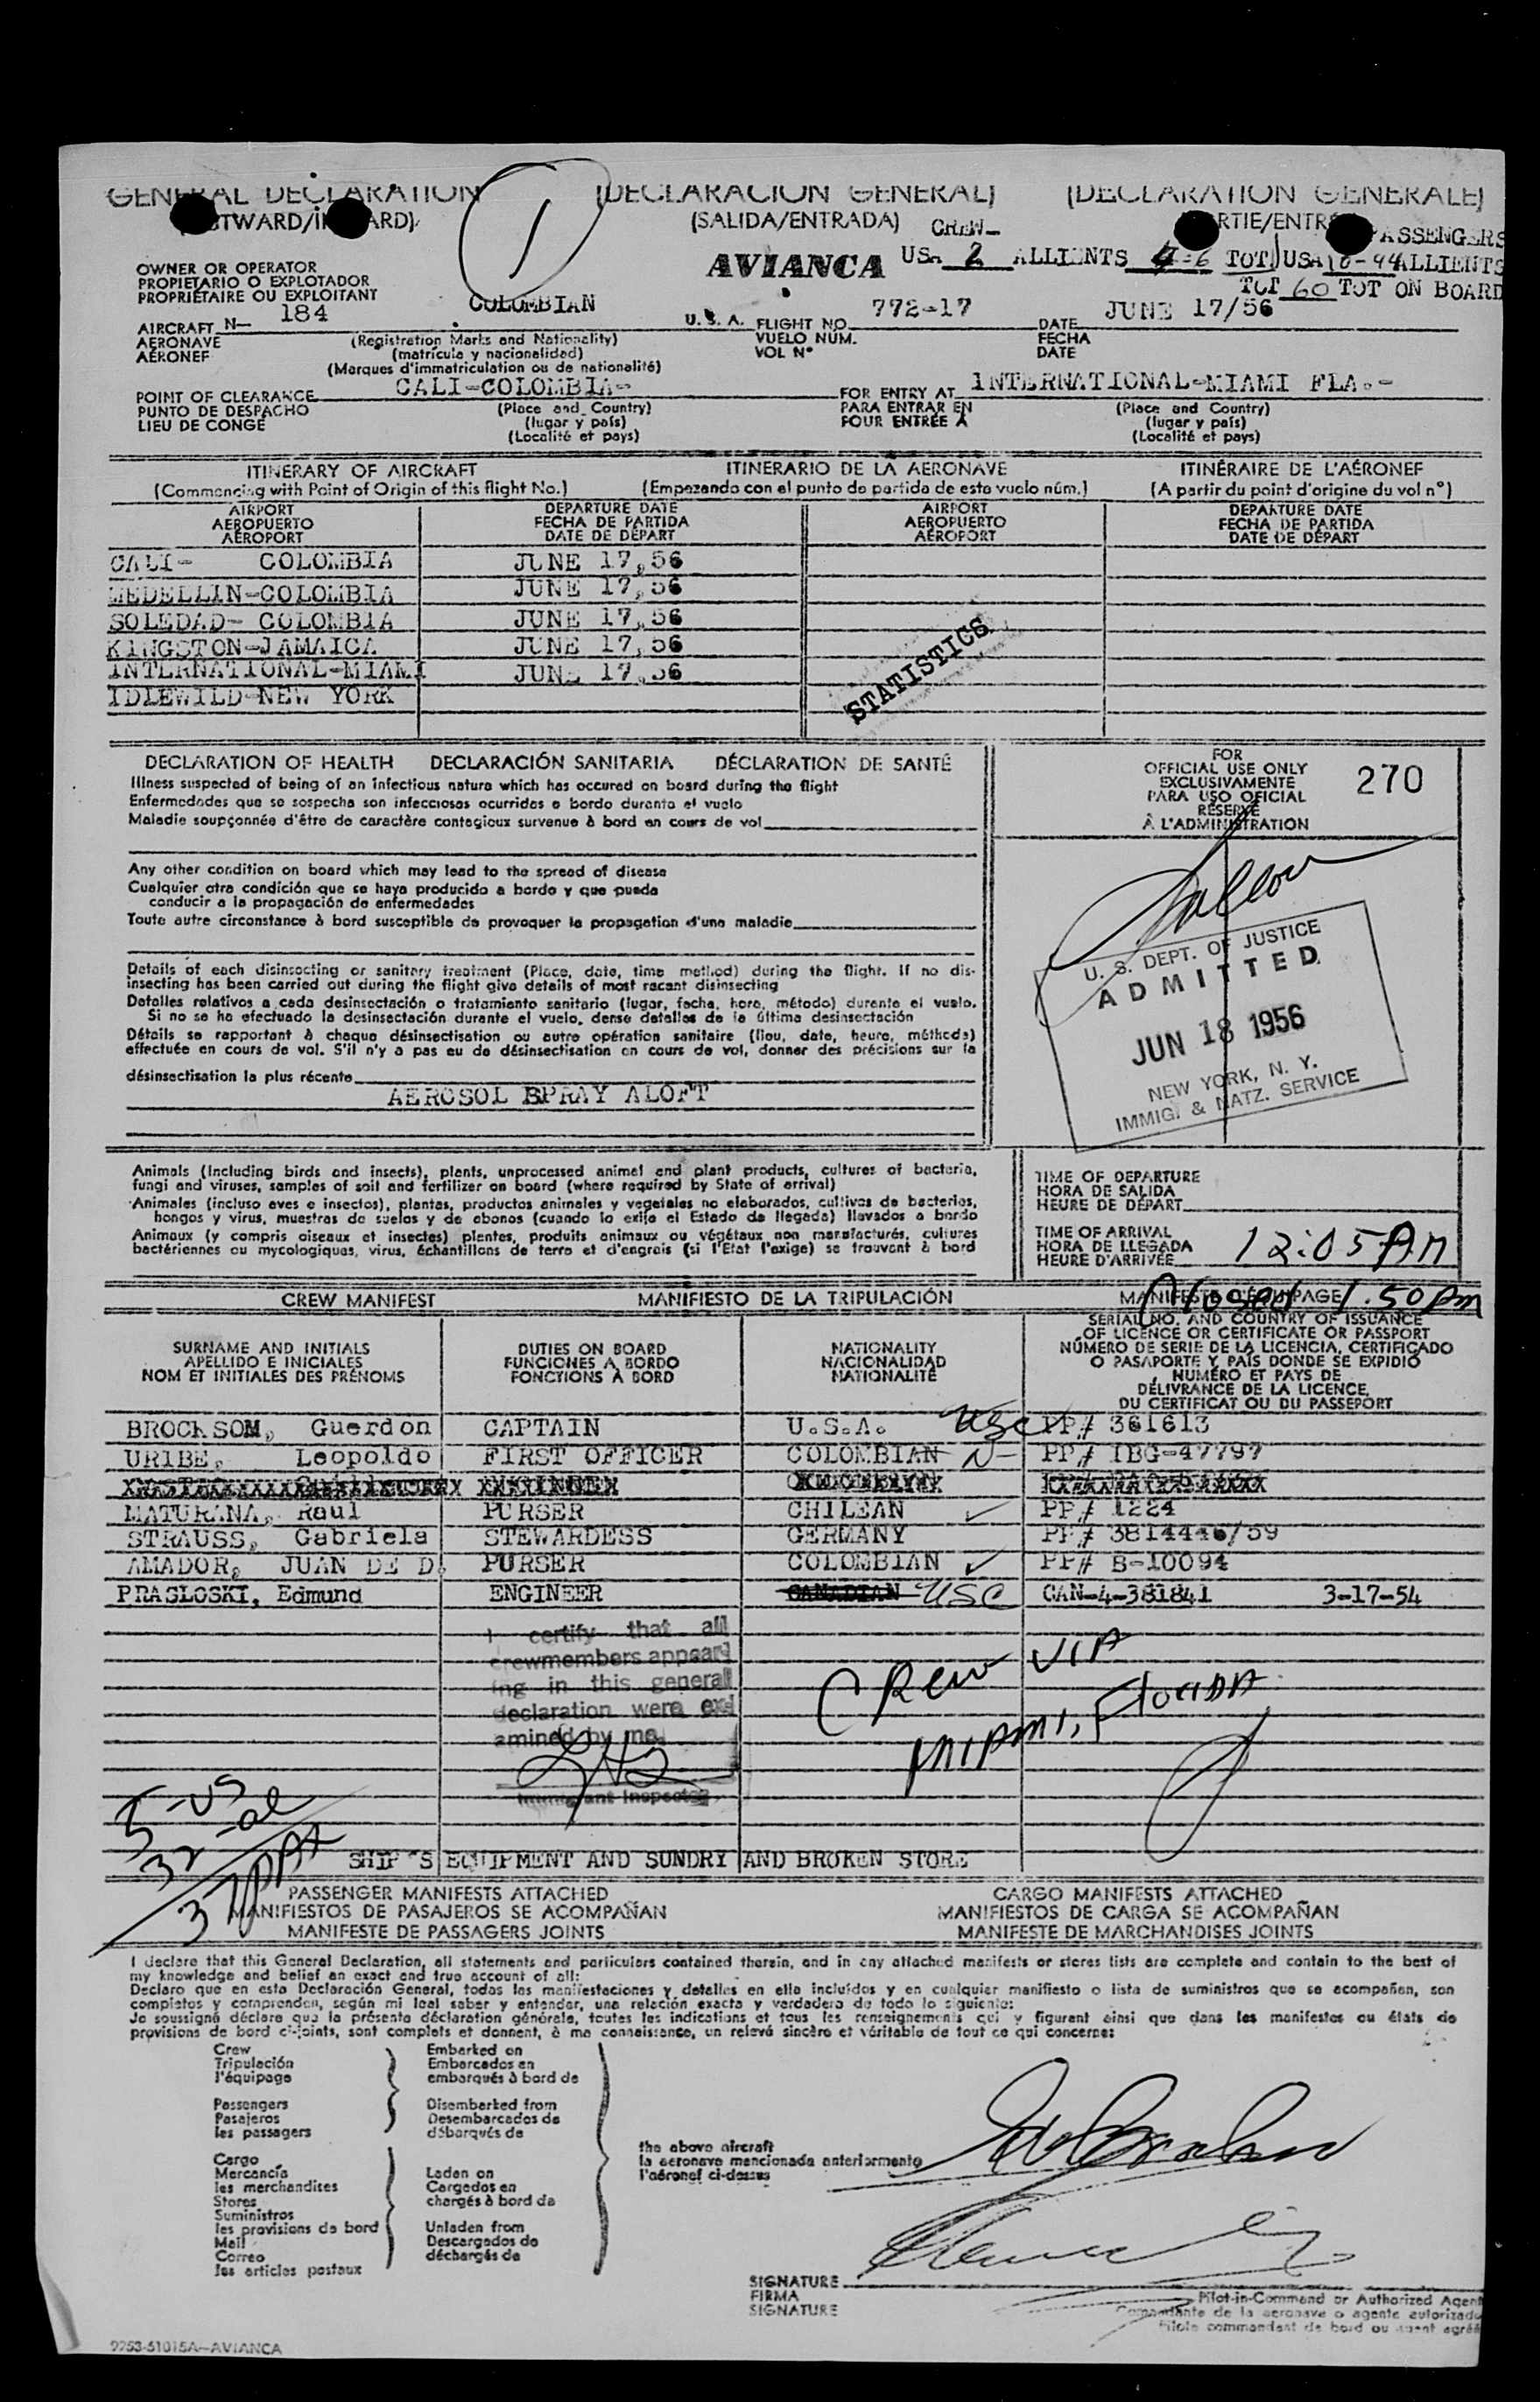 GENERAL DECLARATION (DECLARACION GENERAL) (DECLARATION GENERALE)
(SALIDA/ENTRADA) CREW- PASSENGERS
1
OWNER OR OPERATOR
PROPIETARIO O EXPLOTADOR
PROPRIÉTAIRE OU EXPLOITANT
AVIANCA USA 2 ALLIENTS 4=6 TOT USA 16-44 ALLIENTS
TOT 60 TOT ON BOARD
AIRCRAFT N- 184 COLOMBIAN U.S.A. FLIGHT NO. 772-17 DATE JUNE 17/56
AERONAVE (Registration Marks and Nationality) VUELO NUM. FECHA
AÉRONEF (matrícula y nacionalidad) VOL N° DATE
(Marques d'immatriculation ou de nationalité)
POINT OF CLEARANCE CALI-COLOMBIA- FOR ENTRY AT INTERNATIONAL-MIAMI FLA.-
PUNTO DE DESPACHO (Place and Country) PARA ENTRAR EN (Place and Country)
LIEU DE CONGÉ (lugar y país) POUR ENTRÉE A (lugar y país)
(Localité et pays) (Localité et pays)
ITINERARY OF AIRCRAFT ITINERARIO DE LA AERONAVE ITINÉRAIRE DE L'AÉRONEF
(Commencing with Point of Origin of this flight No.) (Empezando con el punto de partida de este vuelo núm.) (A partir du point d'origine du vol n°)
AIRPORT DEPARTURE DATE AIRPORT DEPARTURE DATE
AEROPUERTO FECHA DE PARTIDA AEROPUERTO FECHA DE PARTIDA
AÉROPORT DATE DE DÉPART AÉROPORT DATE DE DÉPART
CALI- COLOMBIA JUNE 17,56
MEDELLIN-COLOMBIA JUNE 17,56
SOLEDAD- COLOMBIA JUNE 17,56
KINGSTON-JAMAICA JUNE 17,56
INTERNATIONAL-MIAMI JUNE 17,56
IDLEWILD-NEW YORK
STATISTICS
DECLARATION OF HEALTH DECLARACIÓN SANITARIA DÉCLARATION DE SANTÉ
Illness suspected of being of an infectious nature which has occured on board during the flight
Enfermedades que se sospecha son infecciosas ocurridas a bordo durante el vuelo
Maladie soupçonnée d'être de caractère contagieux survenue à bord en cours de vol
FOR
OFFICIAL USE ONLY
EXCLUSIVAMENTE
PARA USO OFICIAL
RÉSERVÉ
À L'ADMINISTRATION
270
Any other condition on board which may lead to the spread of disease
Cualquier otra condición que se haya producido a bordo y que pueda
conducir a la propagación de enfermedades
Toute autre circonstance à bord susceptible de provoquer la propagation d'une maladie
Details of each disinsecting or sanitary treatment (Place, date, time method) during the flight. If no dis-
insecting has been carried out during the flight give details of most recant disinsecting
Detalles relativos a cada desinsectación o tratamiento sanitario (lugar, fecha, hora, método) durante el vuelo.
Si no se ha efectuado la desinsectación durante el vuelo, dense detalles de la última desinsectación
Détails se rapportant à chaque désinsectisation ou autre opération sanitaire (lieu, date, heure, méthode)
effectuée en cours de vol. S'il n'y a pas eu de désinsectisation en cours de vol, donner des précisions sur la
désinsectisation la plus récente
AEROSOL SPRAY ALOFT
U. S. DEPT. OF JUSTICE
ADMITTED
JUN 18 1956
NEW YORK, N. Y.
IMMIG. & NATZ. SERVICE
Animals (Including birds and insects), plants, unprocessed animal and plant products, cultures of bacteria,
fungi and viruses, samples of soil and fertilizer on board (where required by State of arrival)
Animales (incluso aves e insectos), plantas, productos animales y vegetales no elaborados, cultivos de bacterias,
hongos y virus, muestras de suelos y de abonos (cuando lo exija el Estado de llegada) llevados a bordo
Animaux (y compris oiseaux et insectes) plantes, produits animaux ou végétaux non manufacturés, cultures
bactériennes ou mycologiques, virus, échantillons de terre et d'engrais (si l'Etat l'exige) se trouvant à bord
TIME OF DEPARTURE
HORA DE SALIDA
HEURE DE DÉPART
TIME OF ARRIVAL
HORA DE LLEGADA 12:05 AM
HEURE D'ARRIVÉE
Closed 1.50 am
CREW MANIFEST MANIFIESTO DE LA TRIPULACIÓN MANIFESTE D'ÉQUIPAGE
SURNAME AND INITIALS DUTIES ON BOARD NATIONALITY SERIAL NO. AND COUNTRY OF ISSUANCE
APELLIDO E INICIALES FUNCIONES A BORDO NACIONALIDAD OF LICENCE OR CERTIFICATE OR PASSPORT
NOM ET INITIALES DES PRÉNOMS FONCTIONS À BORD NATIONALITÉ NÚMERO DE SERIE DE LA LICENCIA, CERTIFICADO
O PASAPORTE Y PAÍS DONDE SE EXPIDIÓ
NUMÉRO ET PAYS DE
DÉLIVRANCE DE LA LICENCE,
DU CERTIFICAT OU DU PASSEPORT
BROCKSOM, Guerdon CAPTAIN U.S.A. USC PP# 361613
URIBE, Leopoldo FIRST OFFICER COLOMBIAN N- PP# IBG-47797
MATURANA, Raul PURSER CHILEAN PP# 1224
STRAUSS, Gabriela STEWARDESS GERMANY PP# 3814446/59
AMADOR, JUAN DE D. PURSER COLOMBIAN PP# B-10094
PRASLOSKI, Edmund ENGINEER CANADIAN USC CAN-4-381841 3-17-54
I certify that all
crewmembers appear
ing in this general
declaration were ex
amined by me
Immigrant Inspector
CREW VIA
MIAMI, FLORIDA
5-US
32-al
37 PAX
SHIP'S EQUIPMENT AND SUNDRY AND BROKEN STORE
PASSENGER MANIFESTS ATTACHED CARGO MANIFESTS ATTACHED
MANIFIESTOS DE PASAJEROS SE ACOMPAÑAN MANIFIESTOS DE CARGA SE ACOMPAÑAN
MANIFESTE DE PASSAGERS JOINTS MANIFESTE DE MARCHANDISES JOINTS
I declare that this General Declaration, all statements and particulars contained therein, and in any attached manifests or stores lists are complete and contain to the best of
my knowledge and belief an exact and true account of all:
Declaro que en esta Declaración General, todas las manifestaciones y detalles en ella incluídos y en cualquier manifiesto o lista de suministros que se acompañan, son
completos y comprenden, según mi leal saber y entender, una relación exacta y verdadera de todo lo siguiente:
Je soussigné déclare que la présente déclaration générale, toutes les indications et tous les renseignements qui y figurent ainsi que dans les manifestes ou états de
provisions de bord ci-joints, sont complets et donnent, à ma connaissance, un relevé sincère et véritable de tout ce qui concerne:
Crew Embarked on
Tripulación Embarcados en
l'équipage embarqués à bord de
Passengers Disembarked from
Pasajeros Desembarcados de
les passagers débarqués de
the above aircraft
la aeronave mencionada anteriormente
l'aéronef ci-dessus
Cargo
Mercancía Laden on
les merchandites Cargados en
Stores chargés à bord de
Suministros
les provisions de bord Unladen from
Mail Descargados de
Correo déchargés de
les articles postaux
SIGNATURE
FIRMA
SIGNATURE
Pilot-in-Command or Authorized Agent
Comandante de la aeronave o agente autorizado
Pilote commandant de bord ou agent agréé
9253-51015A—AVIANCA